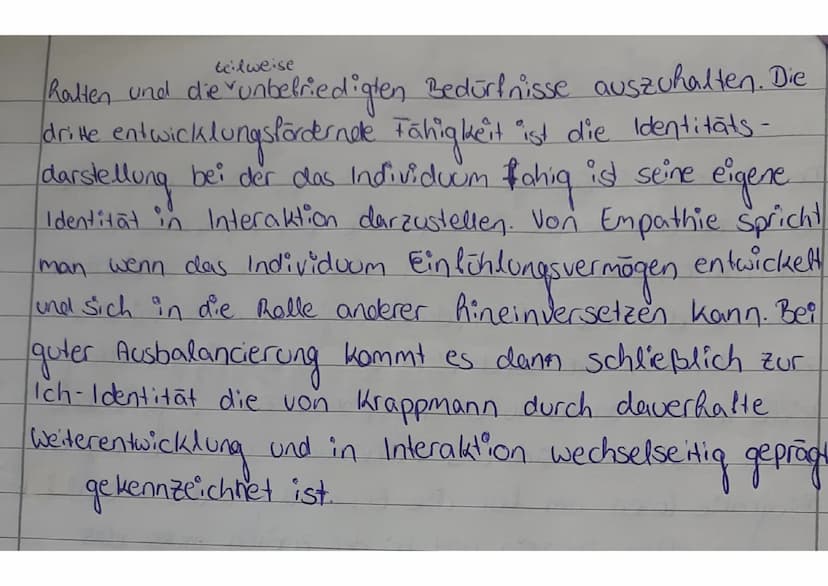 teilweise
Rollen und die unbefriedigten Bedürfnisse auszuhalten. Die
dritte entwicklungsfördernde Fähigkeit ist die Identitäts-
darstellung bei der das Individuum fähig ist seine eigene
Identität in Interaktion darzustellen. Von Empathie spricht
man wenn das Individuum Einfühlungsvermögen entwickelt
und sich in die Rolle anderer hineinversetzen kann. Bei
guter Ausbalancierung kommt es dann schließlich zur
Ich-Identität die von Krappmann durch dauerhafte
Weiterentwicklung und in Interaktion wechselseitig geprägt
gekennzeichnet ist.